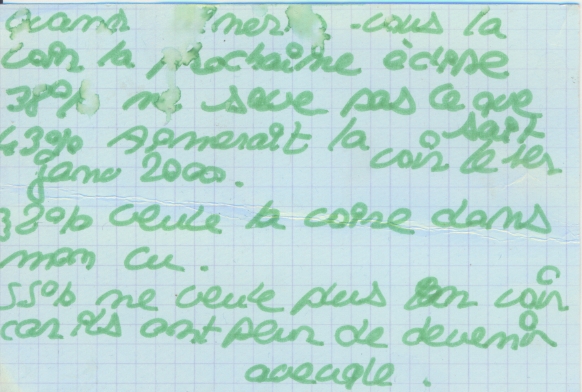 quand mer -vous la
voir la prochaine éclipse
38% ne save pas ce que sait
43% aimerait la voir le 1er
janv 2000.
32% veule la voire dans
mon cu.
55% ne veule plus en voir
car ils ont peur de devenir
aveugle.